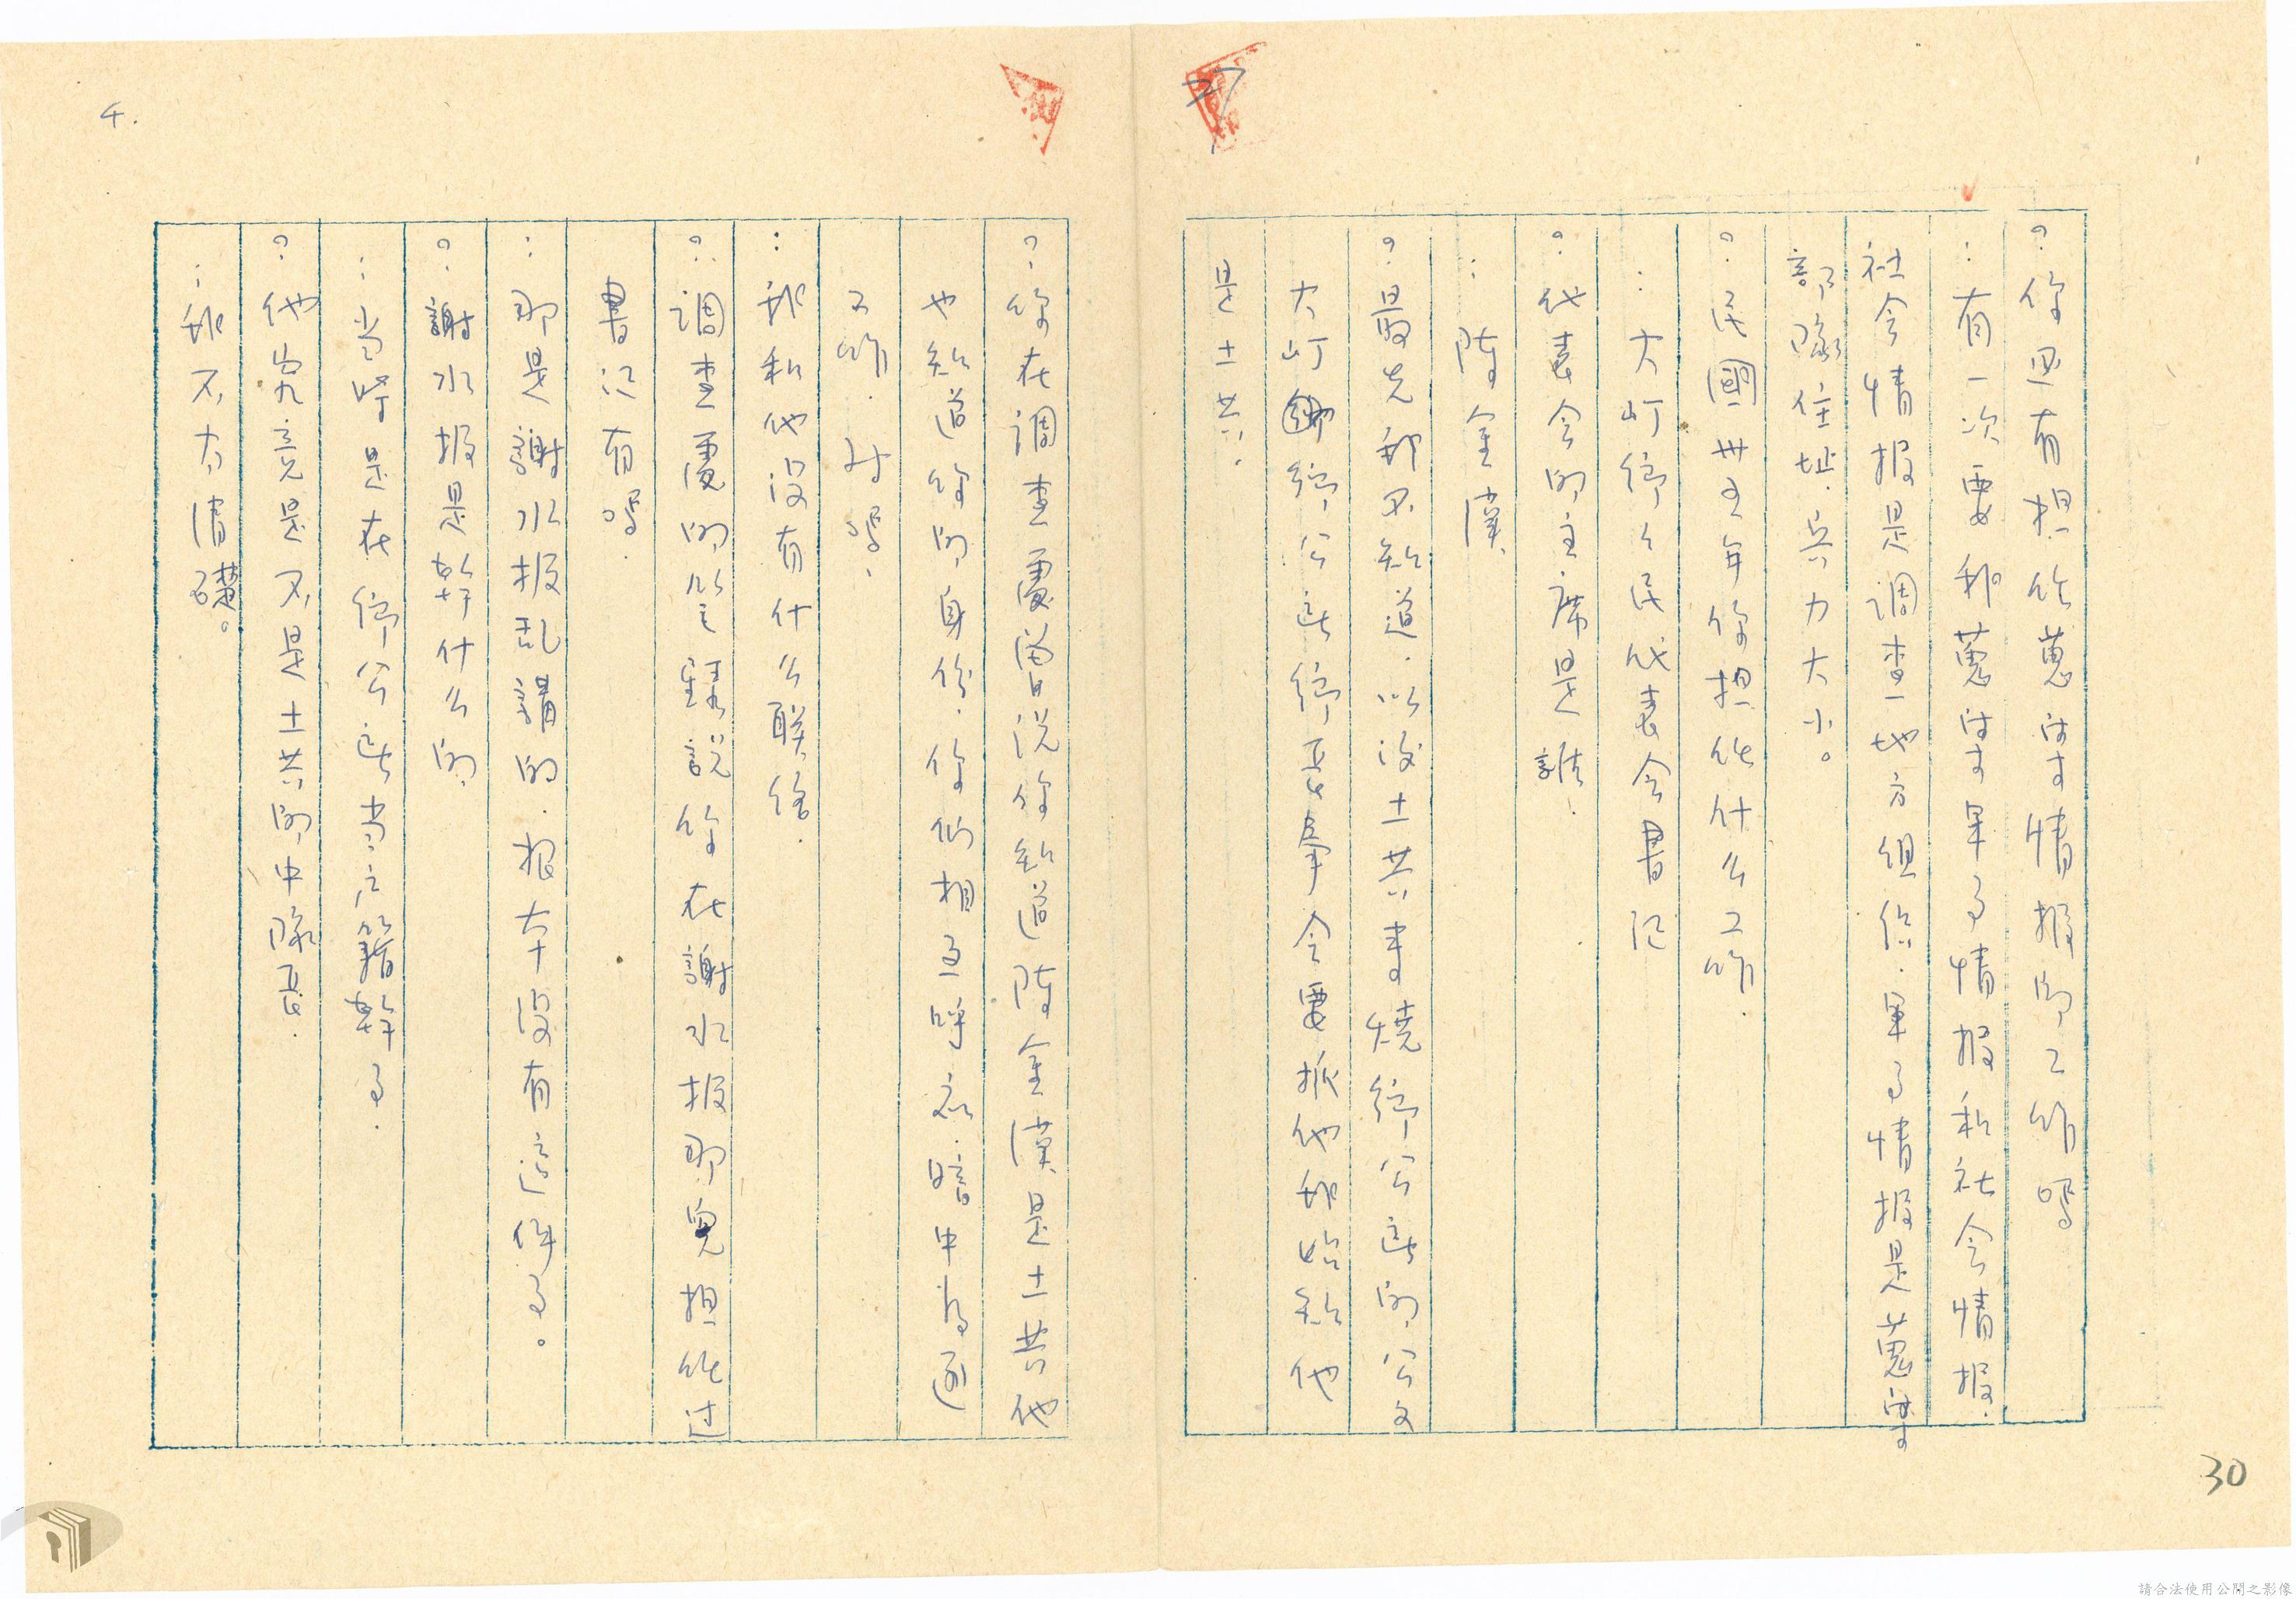 30
？你還有担任蒐集情報的工作嗎
：有一次要我蒐集軍事情報和社会情報.
社会情報是調查地方組織.軍事情報是蒐集
部隊住址.兵力大小。
？民國卅五年你担任什么工作.
：大町鄉鄉民代表会書記
？代表会的主席是誰.
：陳金漢
？最先我不知道.以後土共來燒鄉公所的公文
大町鄉公所鄉長拿令要抓他我始知他
是土共.
？你在調查處曾說你知道陳金漢是土共他
也知道你的身份.你們相互
工作.对嗎.
：我和他沒有什么联络.
？調查處的筆錄說你在謝水报那兒担任过
書记有嗎.
：那是謝水报乱講的.根本沒有這回事。
？謝水报是幹什么的
：当時是在鄉公所当户籍幹事.
？他究竟是不是土共的中隊長.
：我不太清礎。
4.
請合法使用公開之影像